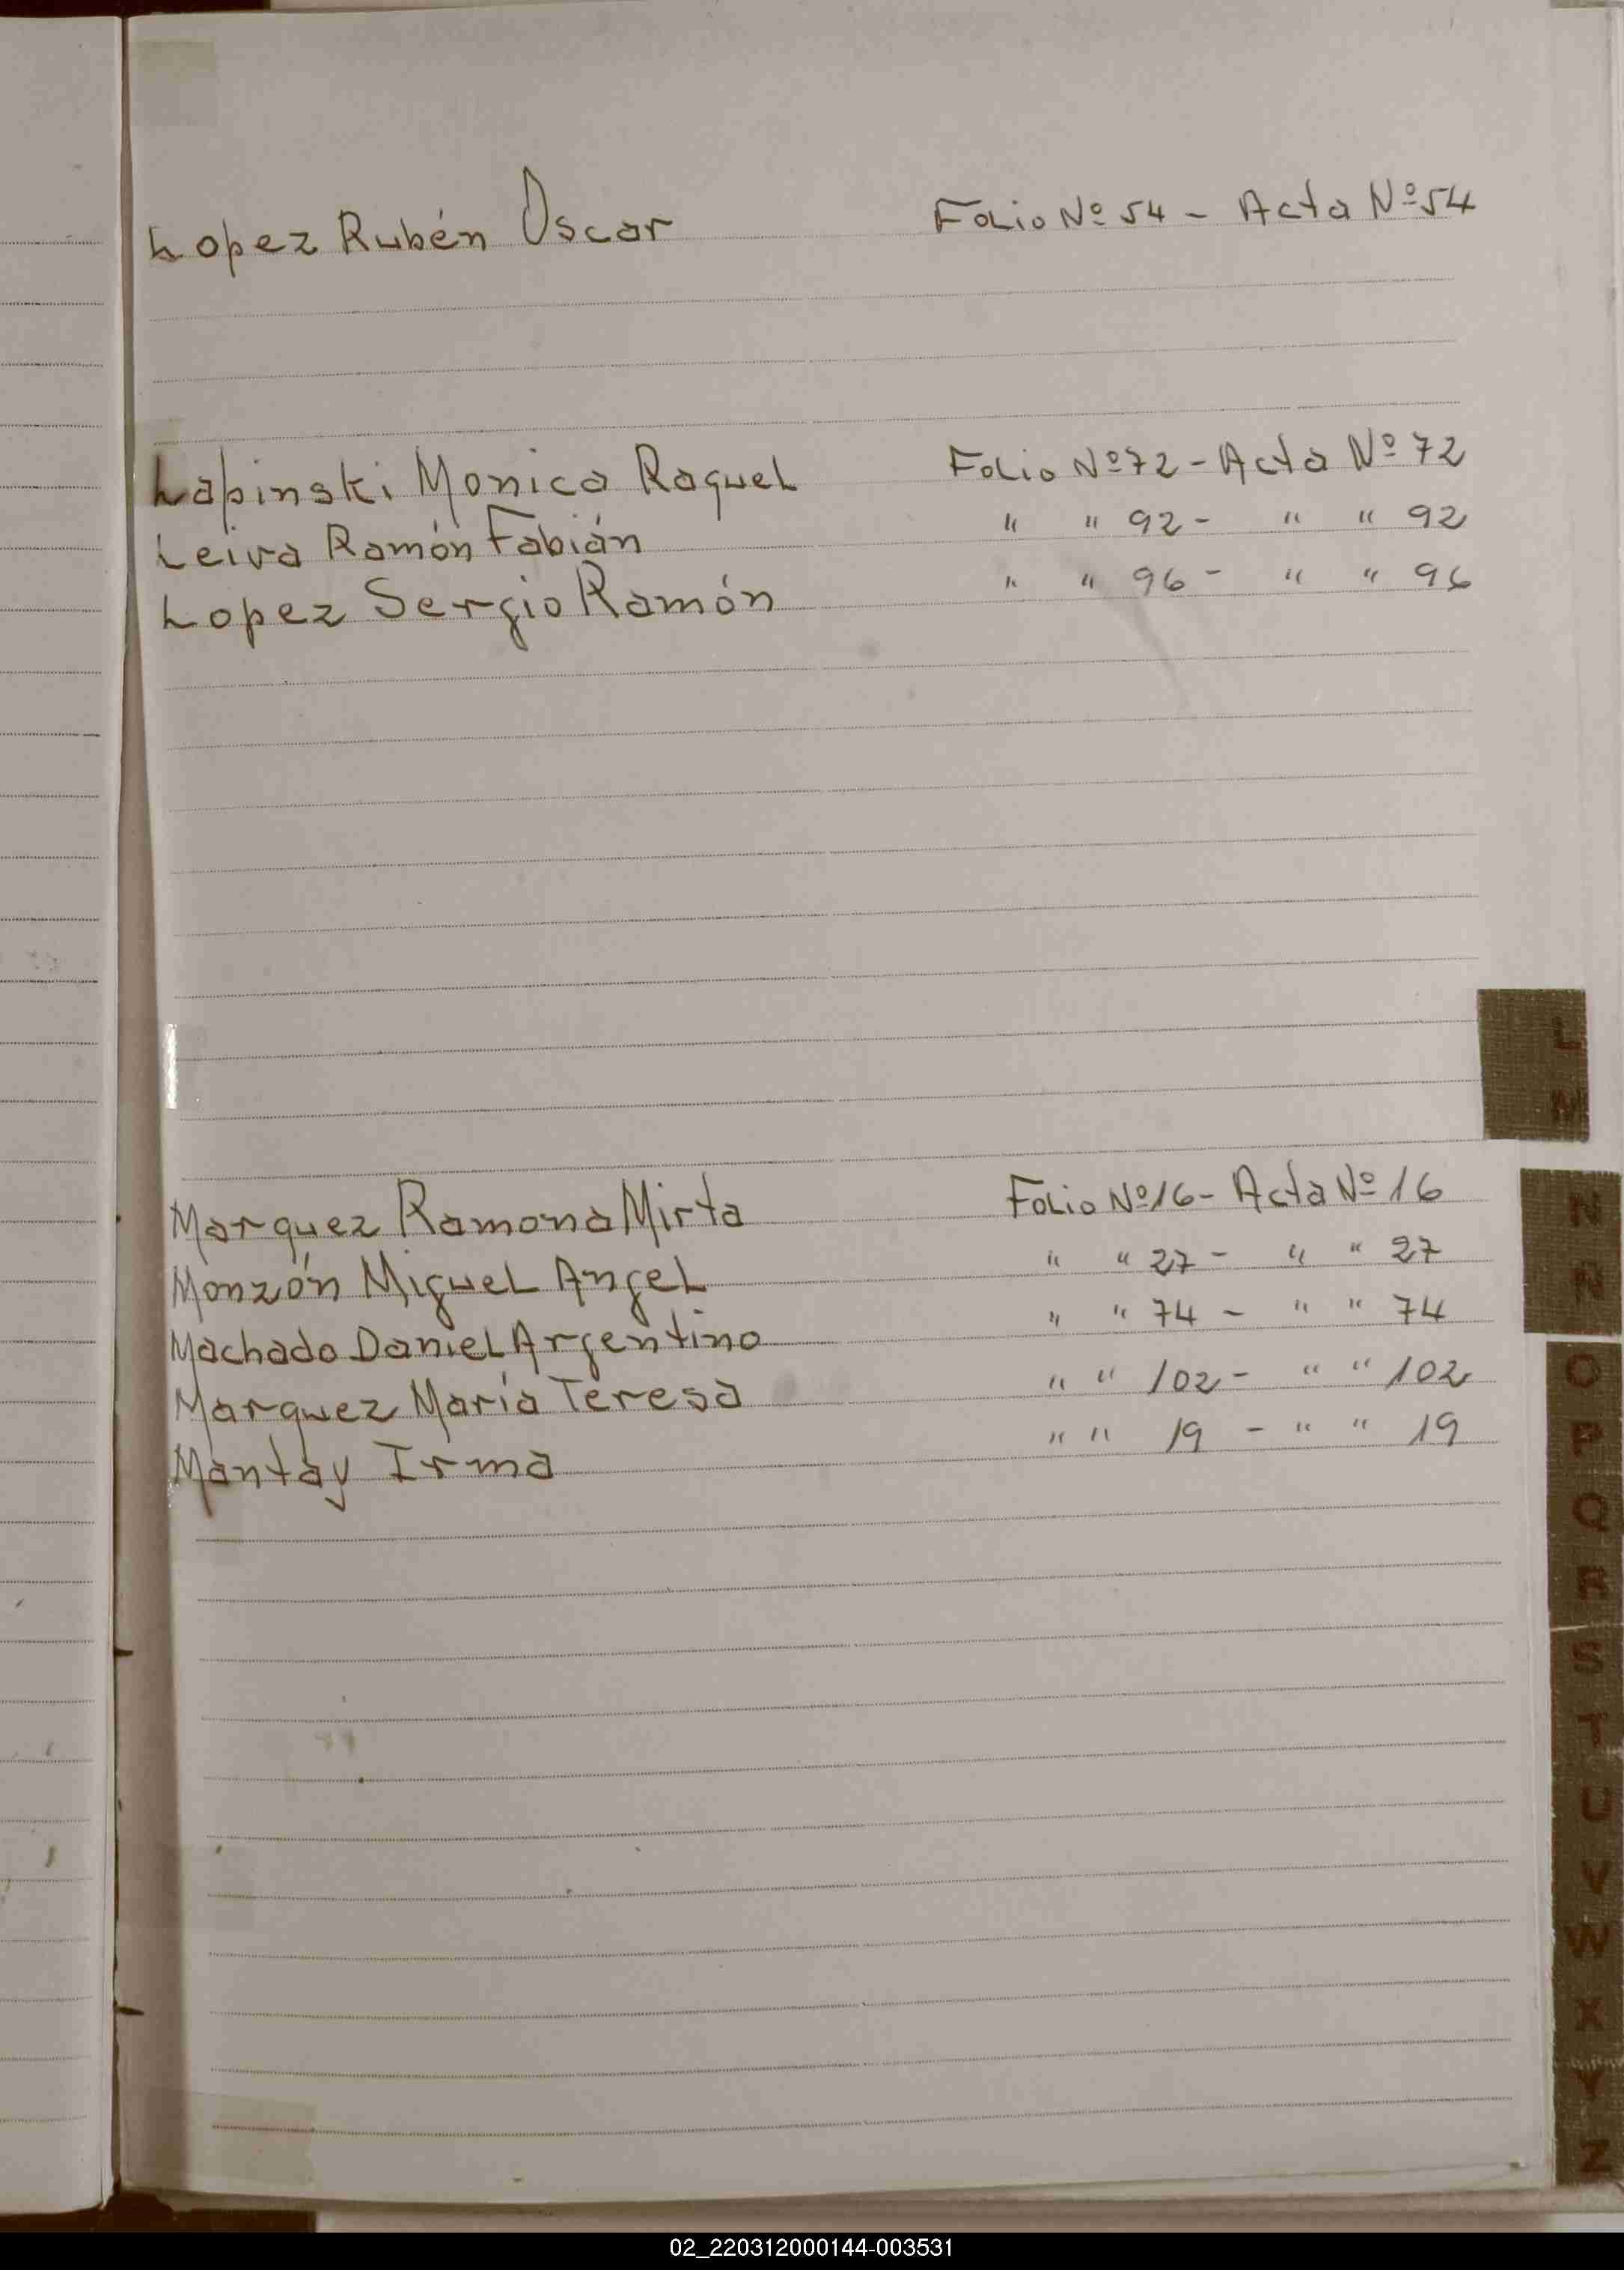 Lopez Rubén Oscar Folio Nº 54 - Acta Nº 54
Lapinski Monica Raquel Folio Nº 72 - Acta Nº 72
Leiva Ramón Fabián " " 92 - " " 92
Lopez Sergio Ramón " " 96 - " " 96
Marquez Ramona Mirta Folio Nº 16 - Acta Nº 16
Monzón Miguel Angel " " 27 - " " 27
Machado Daniel Argentino " " 74 - " " 74
Marquez María Teresa " " 102 - " " 102
Mantay Irma " " 19 - " " 19
L
M
N
Ñ
O
P
Q
R
S
T
U
V
W
X
Y
Z
02_220312000144-003531